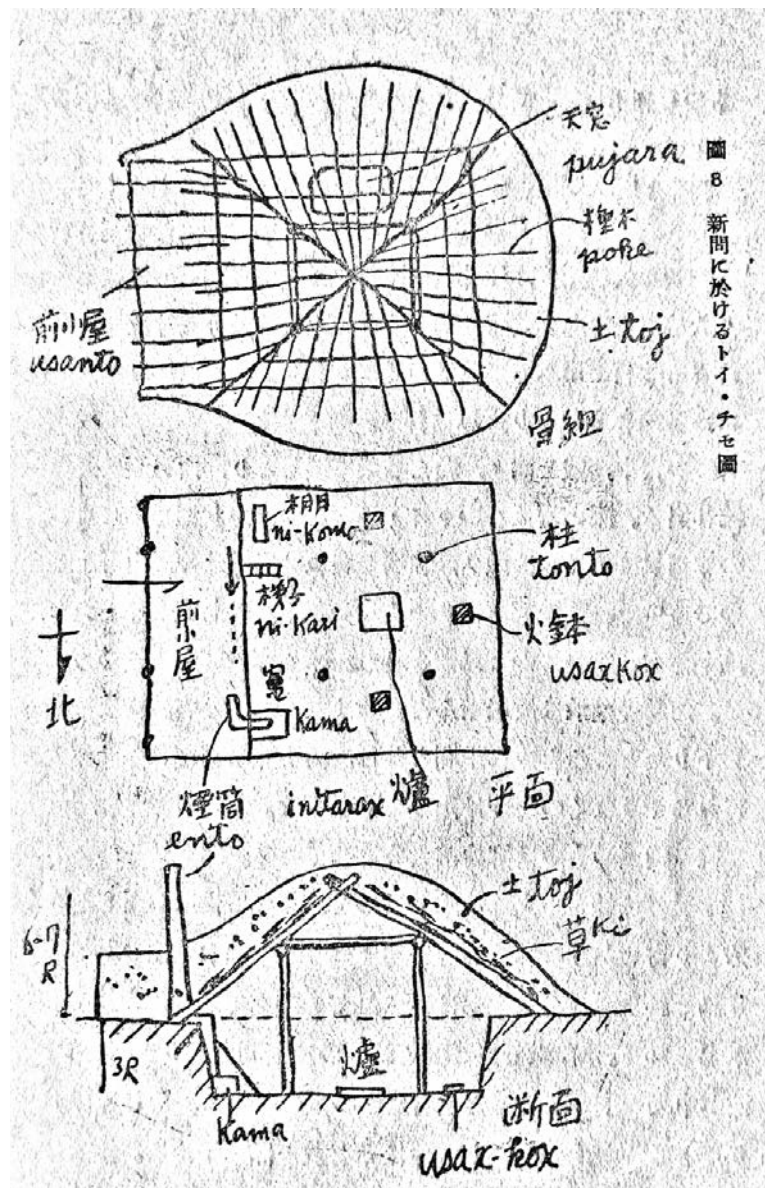 圖8 新問に於けるトイ・チセ圖
天窓
pujara
poke
土 toj
前小屋
usanto
骨組
棚
ni-Komo
柱
tonto
梯子
ni-Kari
火鉢
usaxkox
前小屋
竃
Kama
北
煙筒
ento
initarax 爐
平面
土 toj
草 Ki
6-7
R
3R
爐
Kama
断面
usax-kox